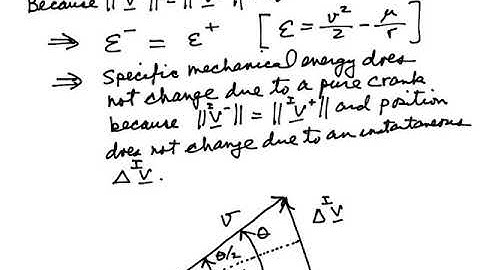 Because ||ᴵV⁻|| = ||ᴵV⁺||
⇒ ε⁻ = ε⁺ [ε = v²/2 − μ/r]
⇒ Specific mechanical energy does
not change due to a pure crank
because ||ᴵV⁻|| = ||ᴵV⁺|| and position
does not change due to an instantaneous
ΔᴵV.
v θ ΔᴵV
θ/2